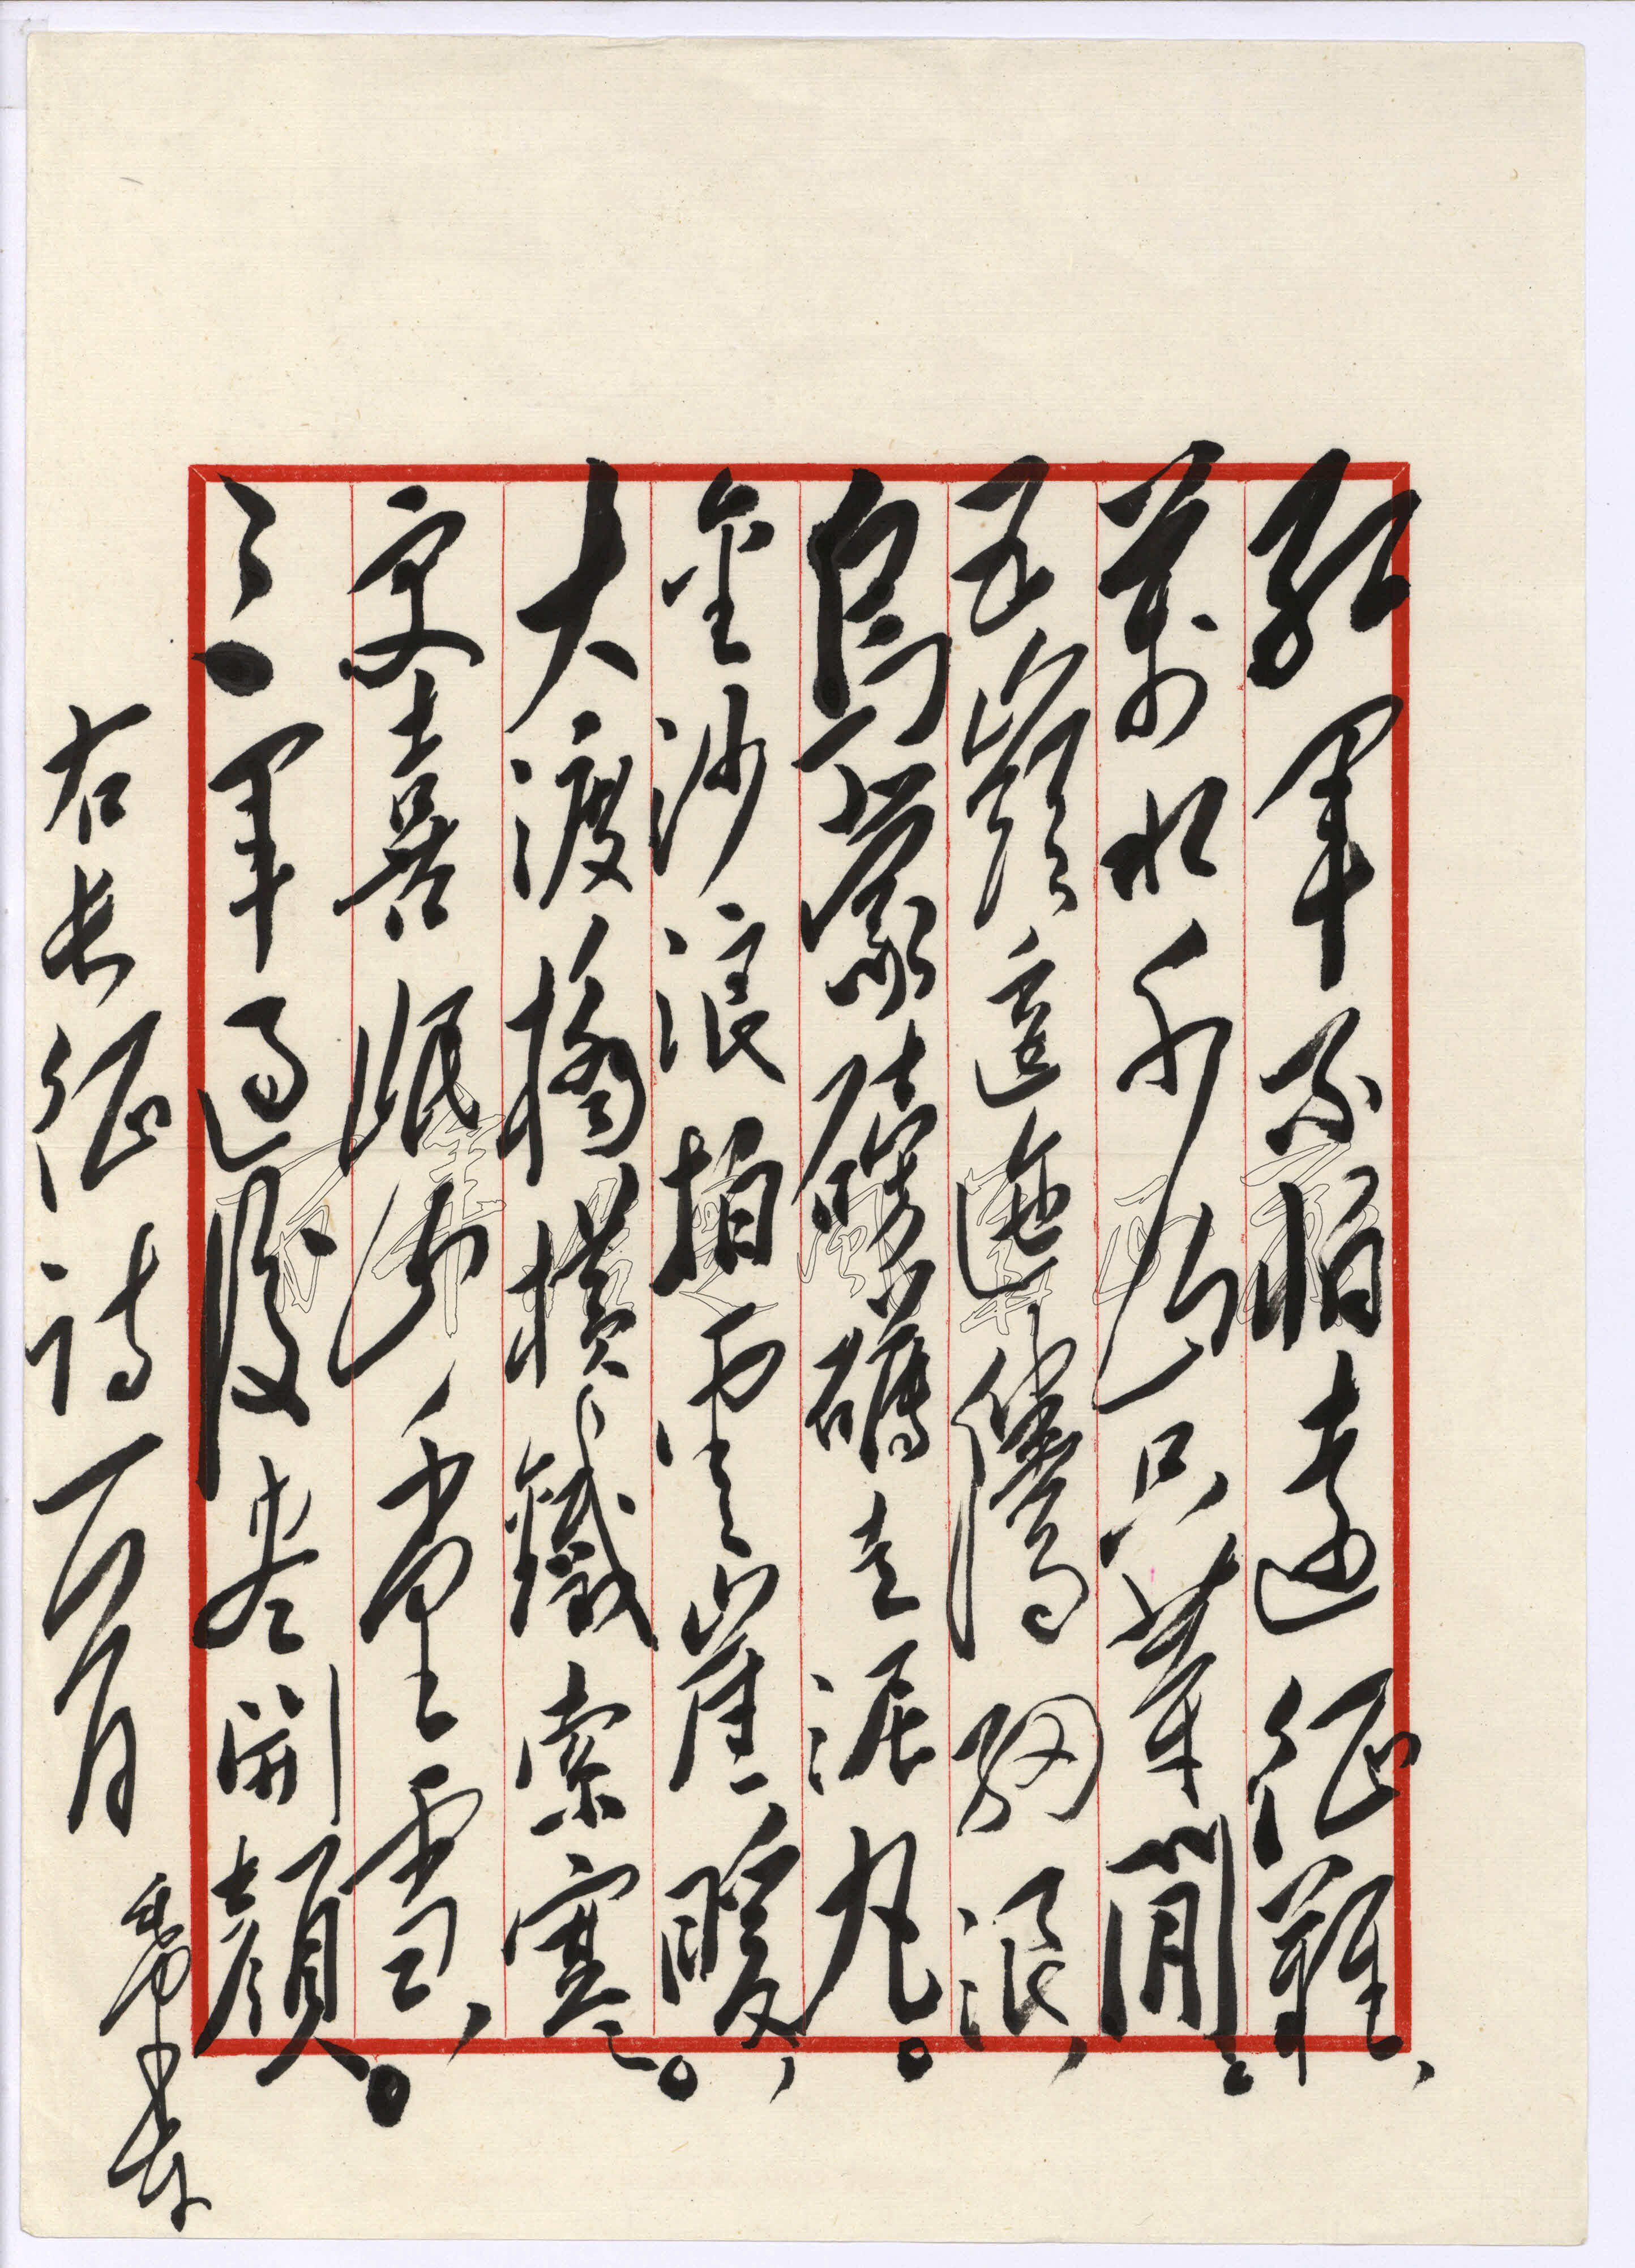 紅軍不怕遠征難，
萬水千山只等閒。
五嶺逶迤騰細浪，
烏蒙磅礴走泥丸。
金沙浪拍雲崖暖，
大渡橋橫鐵索寒。
更喜岷山千里雪，
三軍過後盡開顏。
右長征詩一首
毛澤東